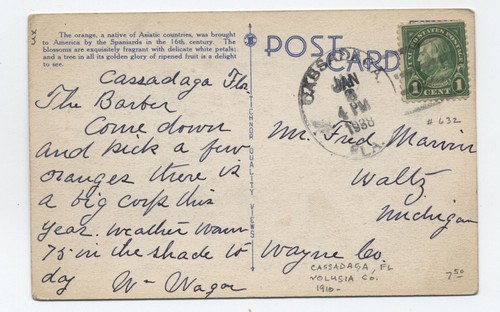 The orange, a native of Asiatic countries, was brought
to America by the Spaniards in the 16th century. The
blossoms are exquisitely fragrant with delicate white petals;
and a tree in all its golden glory of ripened fruit is a delight
to see.
POST CARD
CASSADAGA
JAN
4 PM
1938
FLA.
UNITED STATES POSTAGE
1 CENT 1
# 632
Cassadaga Fla.
The Barber
Come down
and pick a few
oranges there is
a big corp this
year. weather warm
75 in the shade to
day Wm Wagor
TICHNOR QUALITY VIEWS
Mr. Fred Marvin
Waltz
Michigan
Wayne Co.
CASSADAGA, FL
VOLUSIA CO.
1910-
7.50